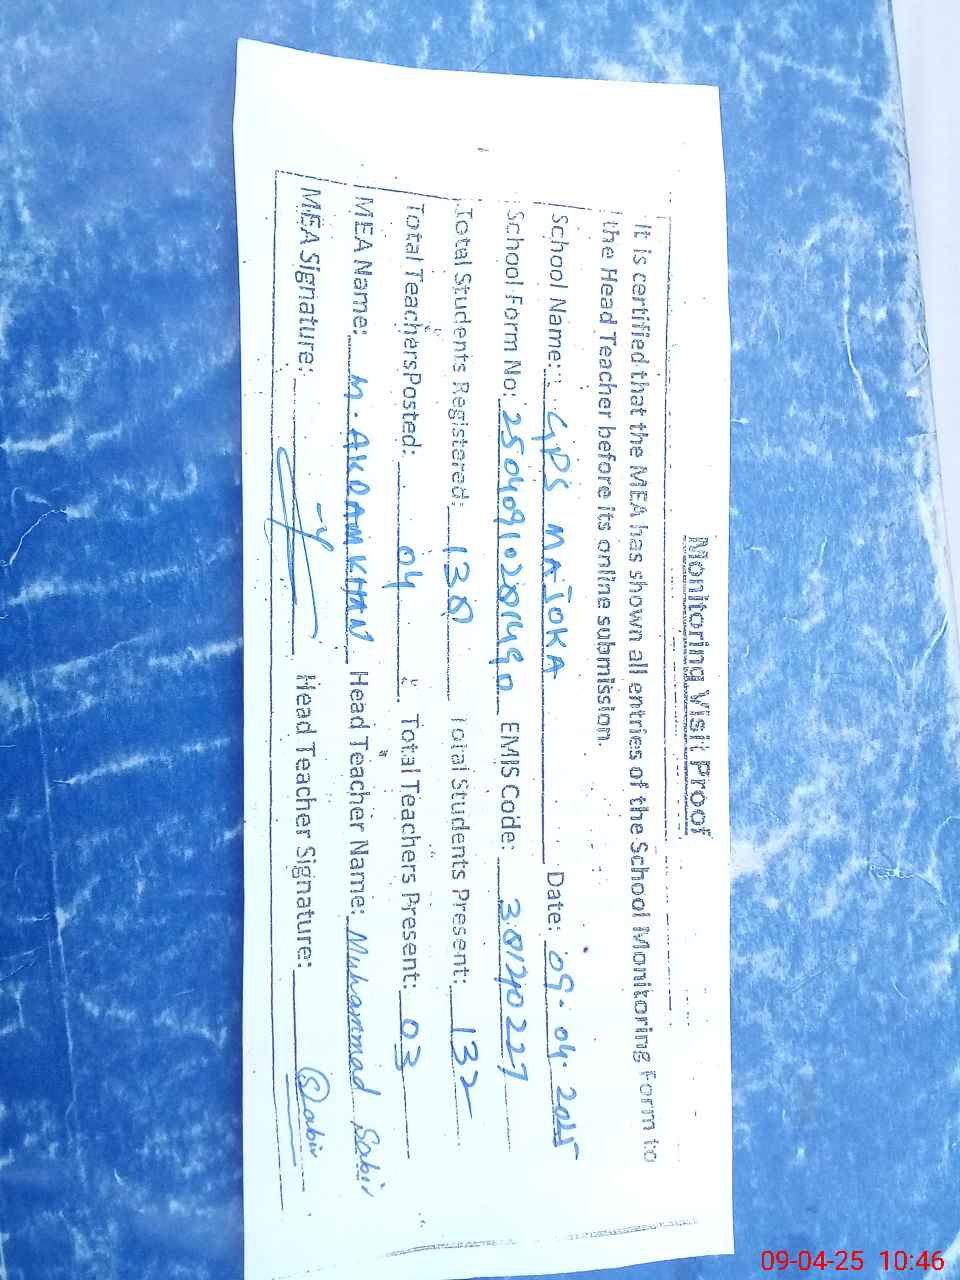 Monitoring Visit Proof
It is certified that the MEA has shown all entries of the School Monitoring Form to
the Head Teacher before its online submission.
School Name: GPS MAJOKA Date: 09-04-2025
School Form No: EMIS Code:
Total Students Registered: Total Students Present: 132
Total Teachers Posted: 04 Total Teachers Present: 03
MEA Name: M. AKRAM KHAN Head Teacher Name: Muhammad Sabir
MEA Signature: Head Teacher Signature: Sabir
09-04-25 10:46